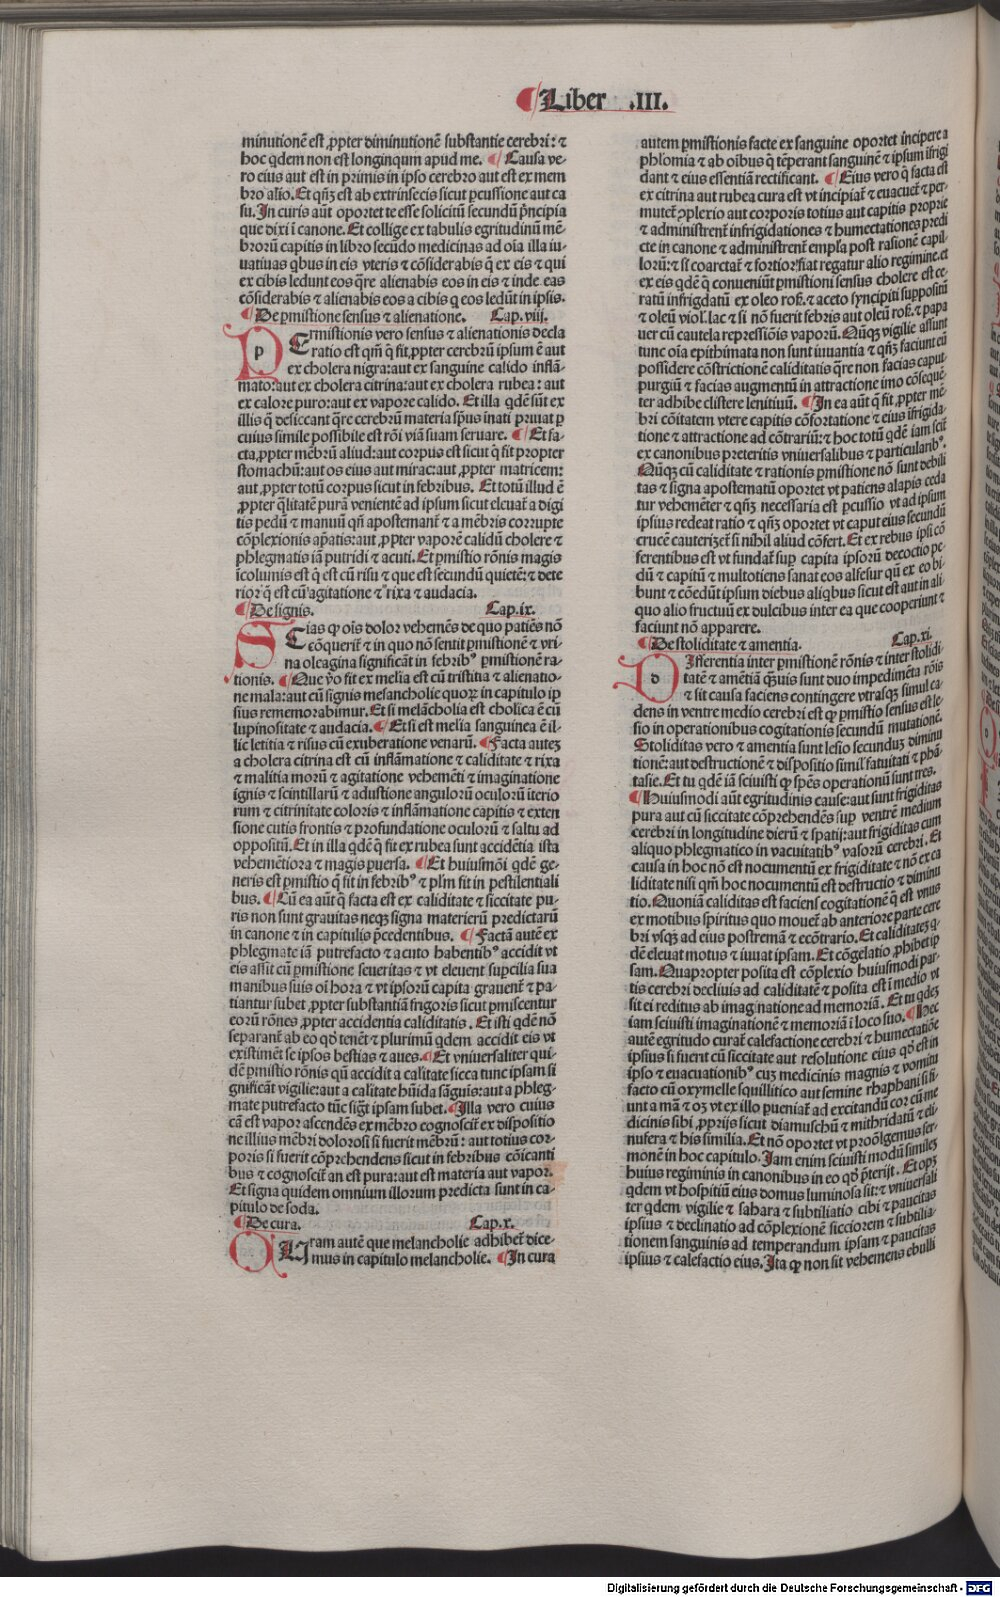 Liber .III.
minutionē est ꝓpter diminutionē substantie cerebri: ⁊
hoc qdem non est longinqum apud me. Causa ve-
ro eius aut est in primis in ipso cerebro aut est ex mem
bro alio. Et qñꝫ est ab extrinsecis sicut ꝑcussione aut ca
su. In curis aūt oportet te esse solicitū secundū p̄ncipia
que dixi ī canone. Et collige ex tabulis egritudinū mē-
brorū capitis in libro secūdo medicinas ad oīa illa iu-
uatiuas qbus in eis vteris ⁊ cōsiderabis q̄ ex eis ⁊ qui
ex cibis ledunt eos qre alienabis eos in eis ⁊ inde eas
cōsiderabis ⁊ alienabis eos a cibis q̄ eos ledūt in ipsis.
De ꝑmistione sensus ⁊ alienatione. Cap. viij.
Ermistionis vero sensus ⁊ alienationis decla
ratio est qm̄ q̄ fit ꝓpter cerebrū ipsum ē aut
ex cholera nigra: aut ex sanguine calido inflā-
mato: aut ex cholera citrina: aut ex cholera rubea: aut
ex calore puro: aut ex vapore calido. Et illa qdē sūt ex
illis q̄ desiccant qre cerebrū materia sp̄us inati priuat ꝑ
cuius simile possibile est rōi viā suam seruare. Et fa-
cta ꝓpter mēbrū aliud: aut corpus est sicut q̄ fit propter
stomachū: aut os eius aut mirac: aut ꝓpter matricem:
aut ꝓpter totū corpus sicut in febribus. Et totū illud ē
ꝓpter q̄litatē purā venientē ad ipsum sicut eleuat̄ a digi
tis pedū ⁊ manuū qñ apostemant̄ ⁊ a mēbris corrupte
cōplexionis ap̄atis: aut ꝓpter vaporē calidū cholere ⁊
phlegmatis iā putridi ⁊ acuti. Et ꝑmistio rōnis magis
īcolumis est q̄ est cū risu ⁊ que est secundū quietē: ⁊ dete
rior q̄ est cū agitatione ⁊ rixa ⁊ audacia.
De signis. Cap. ix.
Cias ꝙ oīs dolor vehemēs de quo patiēs nō
cōquerit̄ ⁊ in quo nō sentit ꝑmistionē ⁊ vri-
na oleagina significāt in febribꝰ ꝑmistionē ra-
tionis. Que ṽo fit ex melia est cū tristitia ⁊ alienatio-
ne mala: aut cū signis melancholie quoꝝ in capitulo ip
sius rememorabimur. Et si melācholia est cholica ē cū
lupinositate ⁊ audacia. Et si est melia sanguinea ē il-
lic letitia ⁊ risus cū exuberatione venarū. Facta auteꝫ
a cholera citrina est cū inflāmatione ⁊ caliditate ⁊ rixa
⁊ malitia morū ⁊ agitatione vehemēti ⁊ imaginatione
ignis ⁊ scintillarū ⁊ adustione angulorū oculorū iterio
rum ⁊ citrinitate coloris ⁊ inflāmatione capitis ⁊ exten
sione cutis frontis ⁊ profundatione oculorū ⁊ saltu ad
oppositū. Et in illa qdē q̄ fit ex rubea sunt accidētia ista
vehemētiora ⁊ magis ꝑuersa. Et huiusmōi qdē ge-
neris est ꝑmistio q̄ fit in febribꝰ ⁊ plm fit in pestilentiali
bus. Cū ea aūt q̄ facta est ex caliditate ⁊ siccitate pu-
ris non sunt grauitas neqꝫ signa materierū predictarū
in canone ⁊ in capitulis p̄cedentibus. Factā autē ex
phlegmate iā putrefacto ⁊ acuto habentibꝰ accidit vt
eis assit cū ꝑmistione seueritas ⁊ vt eleuent supcilia sua
manibus suis oī hora ⁊ vt ipsorū capita grauent̄ ⁊ pa-
tiantur subet ꝓpter substantiā frigoris sicut ꝑmiscentur
eorū rōnes ꝓpter accidentia caliditatis. Et isti qdē nō
separant̄ ab eo qd tenēt ⁊ plurimū qdem accidit eis vt
existimēt se ipsos bestias ⁊ aues. Et vniuersaliter qui-
dē ꝑmistio rōnis qñ accidit a calitate sicca tunc ipsam si
gnificāt vigilie: aut a calitate hūida sāguīs: aut a phleg-
mate putrefacto tūc sigt̄ ipsam subet. Illa vero cuius
cā est vapor ascendēs ex mēbro cognoscit̄ ex dispositio
ne illius mēbri dolorosi si fuerit mēbrū: aut totius cor-
poris si fuerit cōprehendens sicut in febribus cōicanti
bus ⁊ cognoscit̄ an est pura: aut est materia aut vapor.
Et signa quidem omnium illorum predicta sunt in ca-
pitulo de soda.
De cura. Cap. x.
Uram autē que melancholie adhibet̄ dice
mus in capitulo melancholie. In cura
autem ꝑmistionis facte ex sanguine oportet incipere a
phlomia ⁊ ab oibus q̄ tēperant sanguinē ⁊ ipsum īfrigi
dant ⁊ eius essentiā rectificant. Eius vero q̄ facta est
ex citrina aut rubea cura est vt incipiat̄ ⁊ euacuet̄ ⁊ per-
mutet̄ ꝯplexio aut corporis totius aut capitis proprie
⁊ administrent̄ infrigidationes ⁊ humectationes predi
cte in canone ⁊ administrent̄ empla post rasionē capil-
lorū: ⁊ si coarctat̄ ⁊ fortior fiat regatur alio regimine. et
ex eis qdē q̄ conueniūt ꝑmistioni sensus cholere est ce-
ratū infrigdatū ex oleo roſ. ⁊ aceto syncipiti suppositū
⁊ oleū viol. lac ⁊ si nō fuerit febris aut oleū roſ. ⁊ papa
uer cū cautela repressiōis vaporū. Qūqꝫ vigilie assunt
tunc oīa epithimata non sunt iuuantia ⁊ qñꝫ faciunt eū
possidere cōstrictionē caliditatis qre non facias caput
purgiū ⁊ facias augmentū in attractione imo cōsequē-
ter adhibe clistere lenitiuū. In ea aūt q̄ fit ꝓpter mē-
bri cōitatem vtere capitis cōfortatione ⁊ eius īfrigida-
tione ⁊ attractione ad cōtrariū: ⁊ hoc totū qdē iam scit̄
ex canonibus preteritis vniuersalibus ⁊ particularibꝰ.
Qūqꝫ cū caliditate ⁊ rationis ꝑmistione nō sunt debili
tas ⁊ signa apostematū oportet vt patiens alapis ceda
tur vehemēter ⁊ qñꝫ necessaria est ꝑcussio vt ad ipsum
ipsius redeat ratio ⁊ qñꝫ oportet vt caput eius secundū
crucē cauterizet̄ si nihil aliud cōfert. Et ex rebus ipsi cō
ferentibus est vt fundat̄ suꝑ capita ipsorū decoctio pe-
dū ⁊ capitū ⁊ multotiens sanat eos alfesur qñ ex eo bi-
bunt ⁊ cōedūt ipsum diebus aliqbus sicut est aut in ali-
quo alio fructuū ex dulcibus inter ea que cooperiunt ⁊
faciunt nō apparere.
De stoliditate ⁊ amentia. Cap. xi.
Ifferentia inter ꝑmistionē rōnis ⁊ inter stolidi
tatē ⁊ amētiā q̄uis sunt duo impedimēta rōis
⁊ sit causa faciens contingere vtrasqꝫ simul ca-
dens in ventre medio cerebri est ꝙ ꝑmistio sensus est le-
sio in operationibus cogitationis secundū mutationē.
Stoliditas vero ⁊ amentia sunt lesio secunduꝫ diminu
tionē: aut destructionē ⁊ dispositio simil fatuitati ⁊ phā-
tasie. Et tu qdē iā sciuisti ꝙ spēs operationū sunt tres.
Huiusmodi aūt egritudinis cause: aut sunt frigiditas
pura aut cū siccitate cōprehendēs suꝑ ventrē medium
cerebri in longitudine dierū ⁊ spatij: aut frigiditas cum
aliquo phlegmatico in vacuitatibꝰ vasorū cerebri. Et
causa in hoc nō est nocumentū ex frigiditate ⁊ nō ex ca
liditate nisi qm̄ hoc nocumentū est destructio ⁊ diminu
tio. Quoniā caliditas est faciens cogitationē q̄ est vnus
ex motibus spiritus quo mouet̄ ab anteriore parte cere
bri vsqꝫ ad eius postremā ⁊ ecōtrario. Et caliditates q-
dē eleuat motus ⁊ iuuat ipsam. Et cōgelatio ꝓhibet ip
sam. Quapropter posita est cōplexio huiusmodi par-
tis cerebri decliuis ad caliditatē ⁊ posita est ī medio vt
sit ei reditus ab imaginatione ad memoriā. Et tu qdeꝫ
iam sciuisti imaginationē ⁊ memoriā ī loco suo. Hec
autē egritudo curat̄ calefactione cerebri ⁊ humectatiōe
ipsius si fuerit cū siccitate aut resolutione eius qd est in
ipso ⁊ euacuationibꝰ cuꝫ medicinis magnis ⁊ vomitu
facto cū oxymelle squillitico aut semine rhaphani si fi-
unt a mā ⁊ oꝫ vt ex illo pueniat̄ ad excitandū cor cū me
dicinis sibi ꝓprijs sicut diamuschū ⁊ mithridatū ⁊ eli-
nusera ⁊ his similia. Et nō oportet vt proōlgemus ser-
monē in hoc capitulo. Iam enim sciuisti modū similes
huius regiminis in canonibus in eo qd p̄terijt. Et opꝫ
qdem vt hospitiū eius domus luminosa sit: ⁊ vniuersali
ter qdem vigilie ⁊ sahara ⁊ subtiliatio cibi ⁊ paucitas
ipsius ⁊ declinatio ad cōplexionē sicciorem ⁊ subtilia-
tionem sanguinis ad temperandum ipsam ⁊ paucitas
ipsius ⁊ calefactio eius. Ita ꝙ non sit vehemens ebulli
Digitalisierung gefördert durch die Deutsche Forschungsgemeinschaft - DFG